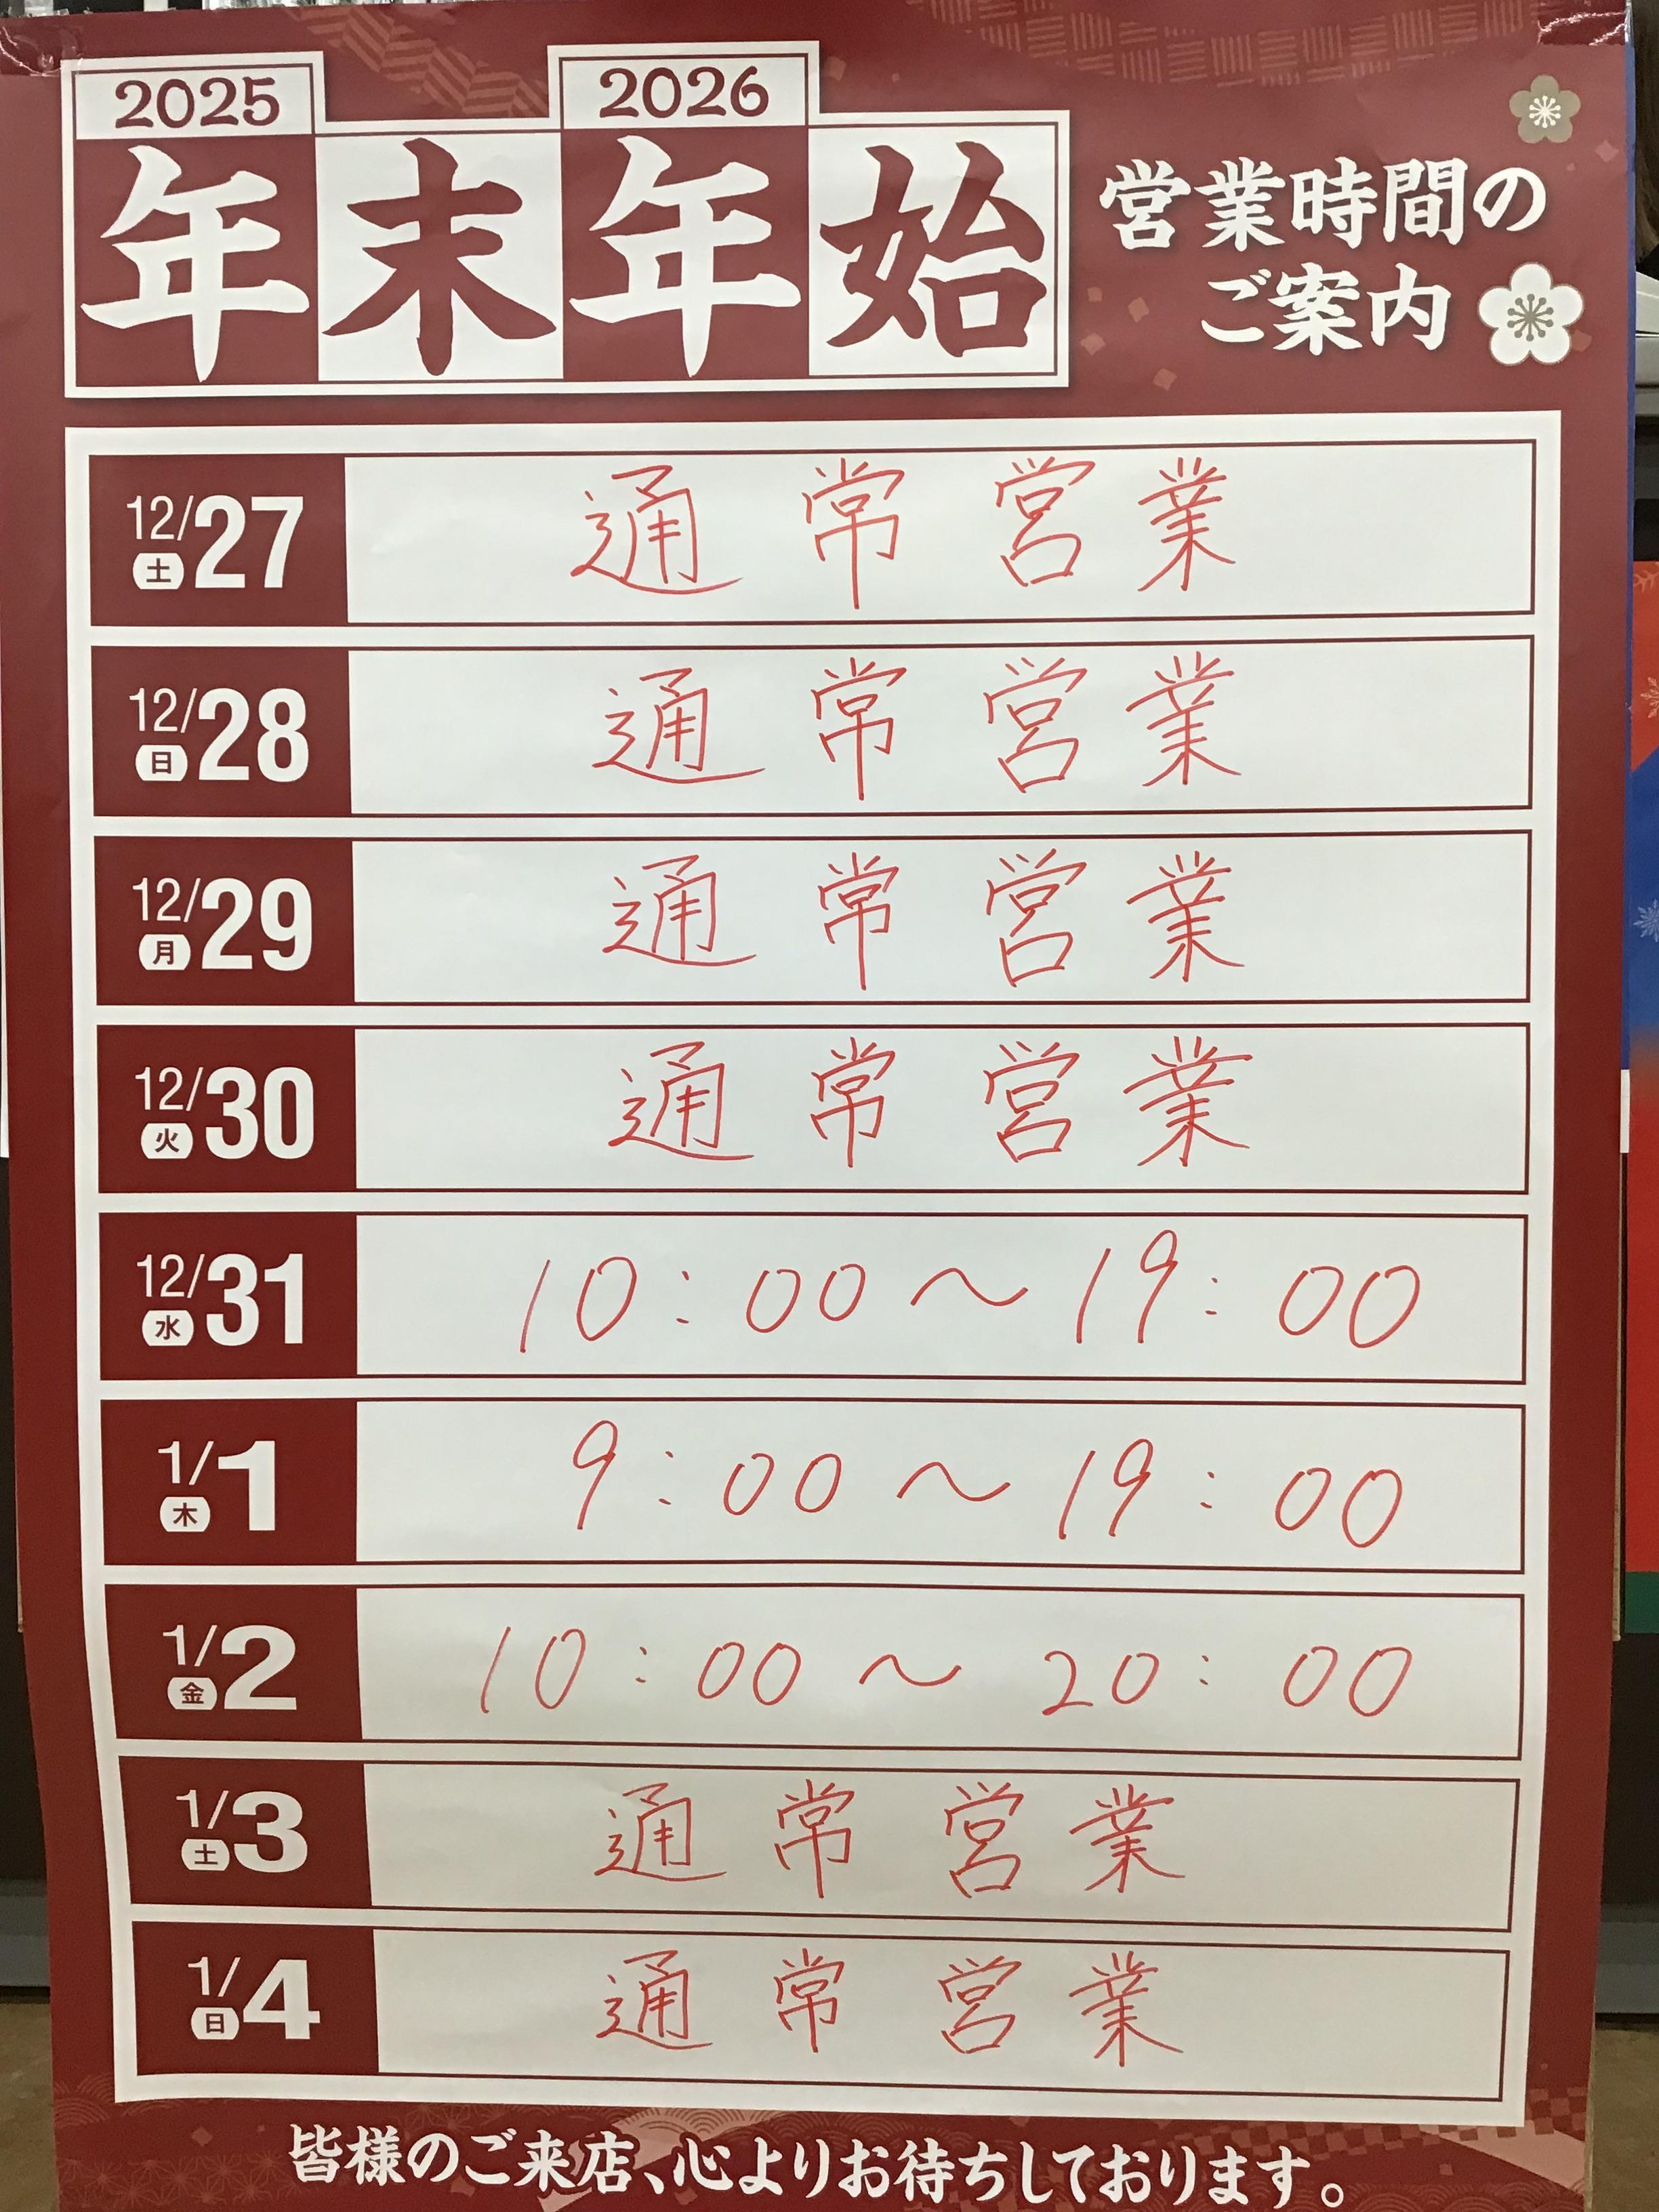 2025 2026
年末年始
営業時間の
ご案内
12/27 土 通常営業
12/28 日 通常営業
12/29 月 通常営業
12/30 火 通常営業
12/31 水 10:00〜19:00
1/1 木 9:00〜19:00
1/2 金 10:00〜20:00
1/3 土 通常営業
1/4 日 通常営業
皆様のご来店、心よりお待ちしております。